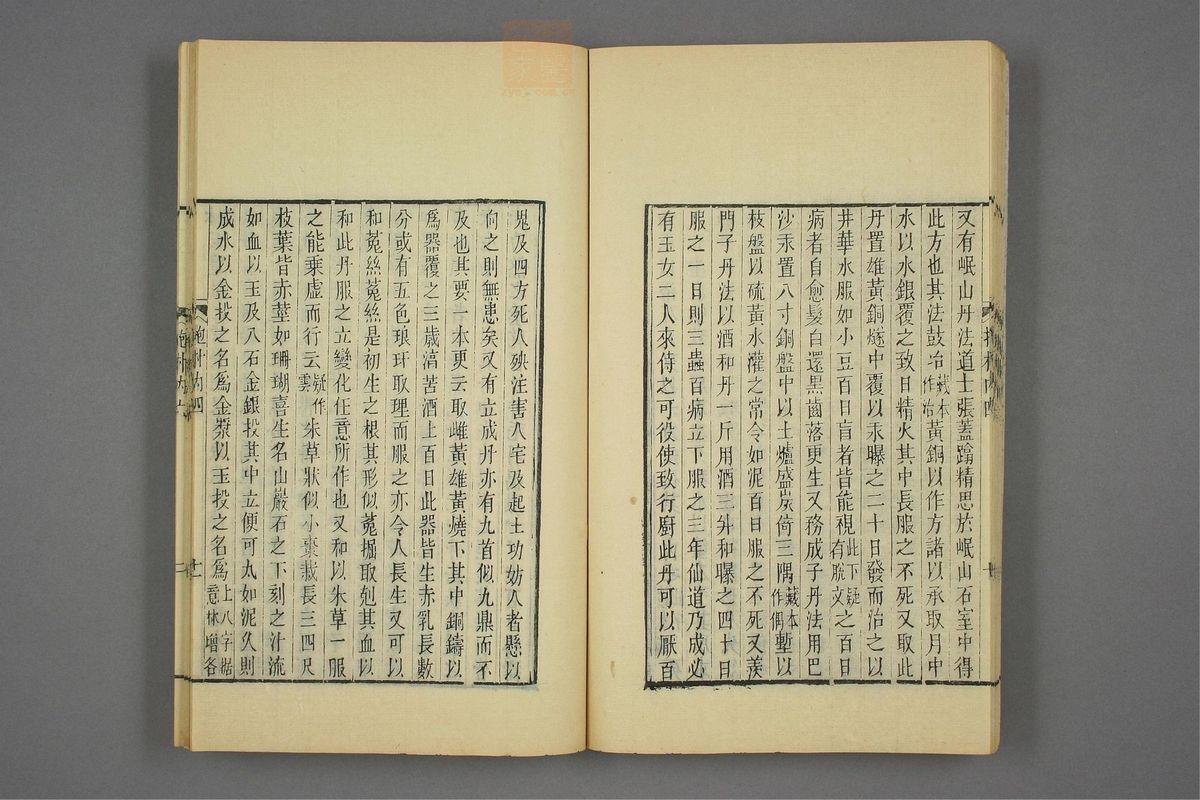 又有岷山丹法道士張蓋蹹精思於岷山石室中得
此方也其法鼓冶藏本作治黃銅以作方諸以承取月中
水以水銀覆之致日精火其中長服之不死又取此
丹置雄黃銅燧中覆以汞曝之二十日發而治之以
井華水服如小豆百日盲者皆能視此下疑有脫文之百日
病者自愈髮白還黑齒落更生又務成子丹法用巴
沙汞置八寸銅盤中以土爐盛炭倚三隅藏本作偶塹以
枝盤以硫黃水灌之常令如泥百日服之不死又羨
門子丹法以酒和丹一斤用酒三升和曝之四十日
服之一日則三蟲百病立下服之三年仙道乃成必
有玉女二人來侍之可役使致行厨此丹可以厭百
鬼及四方死人殃注害人宅及起土功妨人者懸以
向之則無患矣又有立成丹亦有九首似九鼎而不
及也其要一本更云取雌黃雄黃燒下其中銅鑄以
爲器覆之三歲淳苦酒上百日此器皆生赤乳長數
分或有五色琅玕取理而服之亦令人長生又可以
和菟絲菟絲是初生之根其形似菟掘取剋其血以
和此丹服之立變化任意所作也又和以朱草一服
之能乘虛而行云疑作雲朱草狀似小棗栽長三四尺
枝葉皆赤莖如珊瑚喜生名山巖石之下刻之汁流
如血以玉及八石金銀投其中立便可丸如泥久則
成水以金投之名爲金漿以玉投之名爲上八字據意林增各
抱朴內四
十二